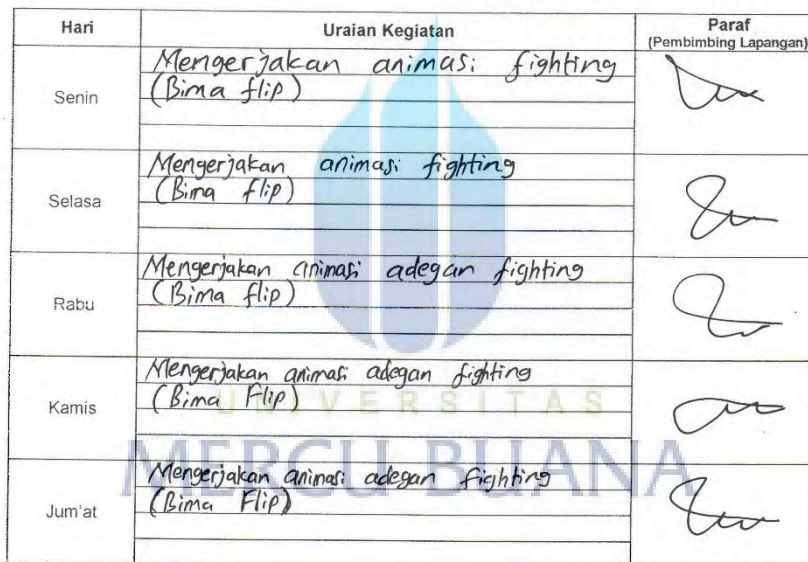 Hari
Uraian Kegiatan
Paraf
(Pembimbing Lapangan)
Senin
Mengerjakan animasi fighting
(Bima flip)
Selasa
Mengerjakan animasi fighting
(Bima flip)
Rabu
Mengerjakan animasi adegan fighting
(Bima flip)
Kamis
Mengerjakan animasi adegan fighting
(Bima Flip)
UNIVERSITAS
MERCU BUANA
Jum'at
Mengerjakan animasi adegan fighting
(Bima Flip)